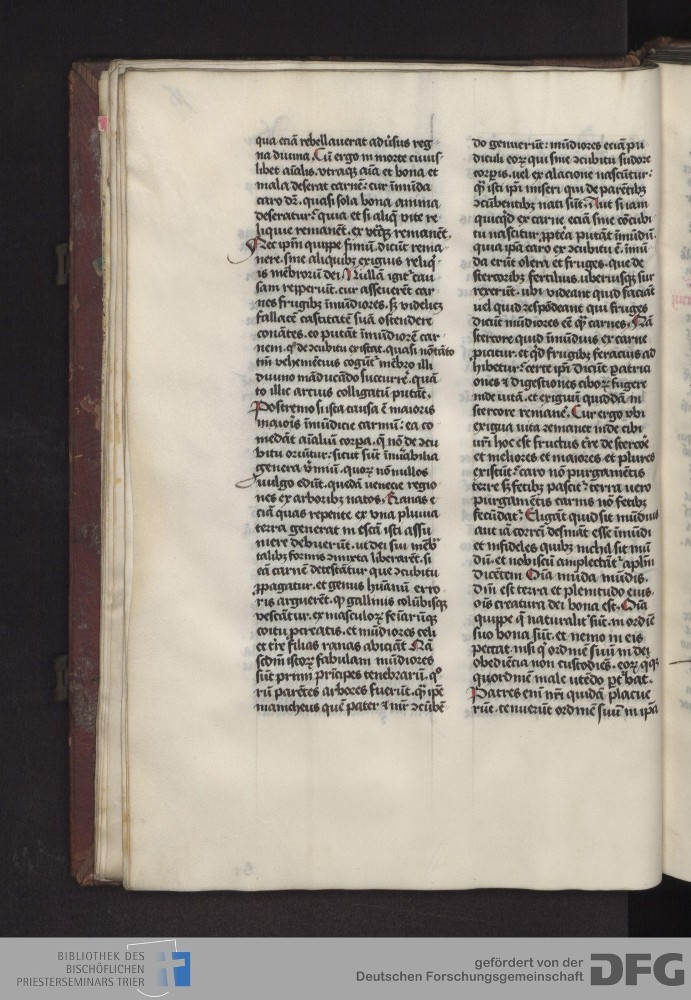 qua eciā rebellauerat adūsus reg
na diuina. Cū ergo in morte cuius
libet aīalis. vtraqꝫ aīa et bona et
mala deserat carnē: cur īmūda
caro dr̄. quasi sola bona anima
deseratur? quia et si aliq̄ vite re
liquie remanēt. ex vtqꝫ remanēt.
Nec ipm̄ quippe fimū. dicūt rema
nere. sine aliquibꝫ exiguis reliq̄
is mēbrorū dei. Nullā igit᷑ cau
sam repperiūt. cur asseuerēt car
nes frugibꝫ īmūdiores. sꝫ videlicꝫ
fallacē castitatē suā ostendere
conātes. eo putāt īmūdiorē car
nem. qd̄ de ↄcubitu existat. quasi nō tāto
tm̄ vehemēcius cogūt᷑ mēbro illi
diuino māducādo succurrē. quā
to illic arcius colligatū putāt.
Postremo si ista causa ē maioris
maioris īmūdicie carniū: ea co
medāt aīaliū corpa. q̄ nō de ↄcu
bitu oriūtur: sicut sūt īnūabilia
genera v̄miū. quoꝝ nōnullos
vulgo edūt. quedā venecie regio
nes ex arboribꝫ natos. Ranas e
ciā quas repente ex vna pluuia
terra generat in escā isti assu
mere debuerūt. ut dei sui mēb
talibꝫ formis ↄmixta liberarēt. si
eā carnē detestātur que ↄcubitu
ꝓpagatur. et genus hūanū erro
ris arguerēt. qꝫ gallinis colūbisqꝫ
vescātur. ex masculoꝝ feīarūqꝫ
coitu ꝓcreatis. et mūdiores celi
et tr̄e filias ranas abiciāt. Nā
scdm̄ istoꝝ fabulam mūdiores
sūt primi prīcipes tenebrarū. qͦ
rū parētes arbores fuerūt. q̄ ipē
manicheus quē pater ⁊ mr̄ ↄcūbē
do genuerūt: mūdiores eciā pii
diculi eoꝝ qui sine ↄcubitu sudore
corpis. uel exalacione nascūtur:
q̄ isti ipi miseri qui de parētibꝫ
ↄcūbentibꝫ nati sūt. Aut si iam
quicqd ex carne eciā sine cōcubi
tu nascitur. ꝓptea putāt īmūdū.
quia ipa caro ex ↄcubitu ē. īmū
da erūt olera et fruges. que de
stercoribꝫ fertilius. uberiusqꝫ sur
rexerūt. ubi videant quid faciāt
uel quid respōdeant qui fruges
dicūt mūdiores eē q̄ carnes. Nā
stercore quid īmūdius ex carne
ꝓicitur. et qd̄ frugibꝫ feracius ad
hibetur? certe ipi dicūt ꝑ atrici
ones ⁊ digestiones ciboꝝ fugere
inde uitā. et exiguū quiddā in
stercore remanē. Cur ergo vbi
exigua uita remanet inde cibi
uri hoc est fructus tr̄e de stercor̄
et meliores et maiores et plures
existūt? caro nō purgamētis
terre. sꝫ fetibꝫ pascit᷑: terra uero
purgamētis carnis nō fetibꝫ
fecūdat᷑? Eligāt quid sit mūdius
aut iā correcti desināt esse īmūdi
et infideles quibꝫ nichil sit mū
dū. et nobiscū amplectāt᷑ aplm̄
dicētem Oīa mūda mūdis.
dn̄i est terra et plenitudo eius.
oīs creatura dei bona est. Oīa
quippe q̄ naturalit᷑ sūt. in ordīe
suo bona sūt. et nemo in eis
peccat. nisi qͥ ordinē suū in dei
obediēcia non custodiēs. eoꝝ qͦqꝫ
quordinē male utēdo ꝑt᷑bat.
Patres enī nri quidā placue
rūt. tenuerūt ordinē suū in ipa
BIBLIOTHEK DES
BISCHÖFLICHEN
PRIESTERSEMINARS TRIER
gefördert von der
Deutschen Forschungsgemeinschaft
DFG